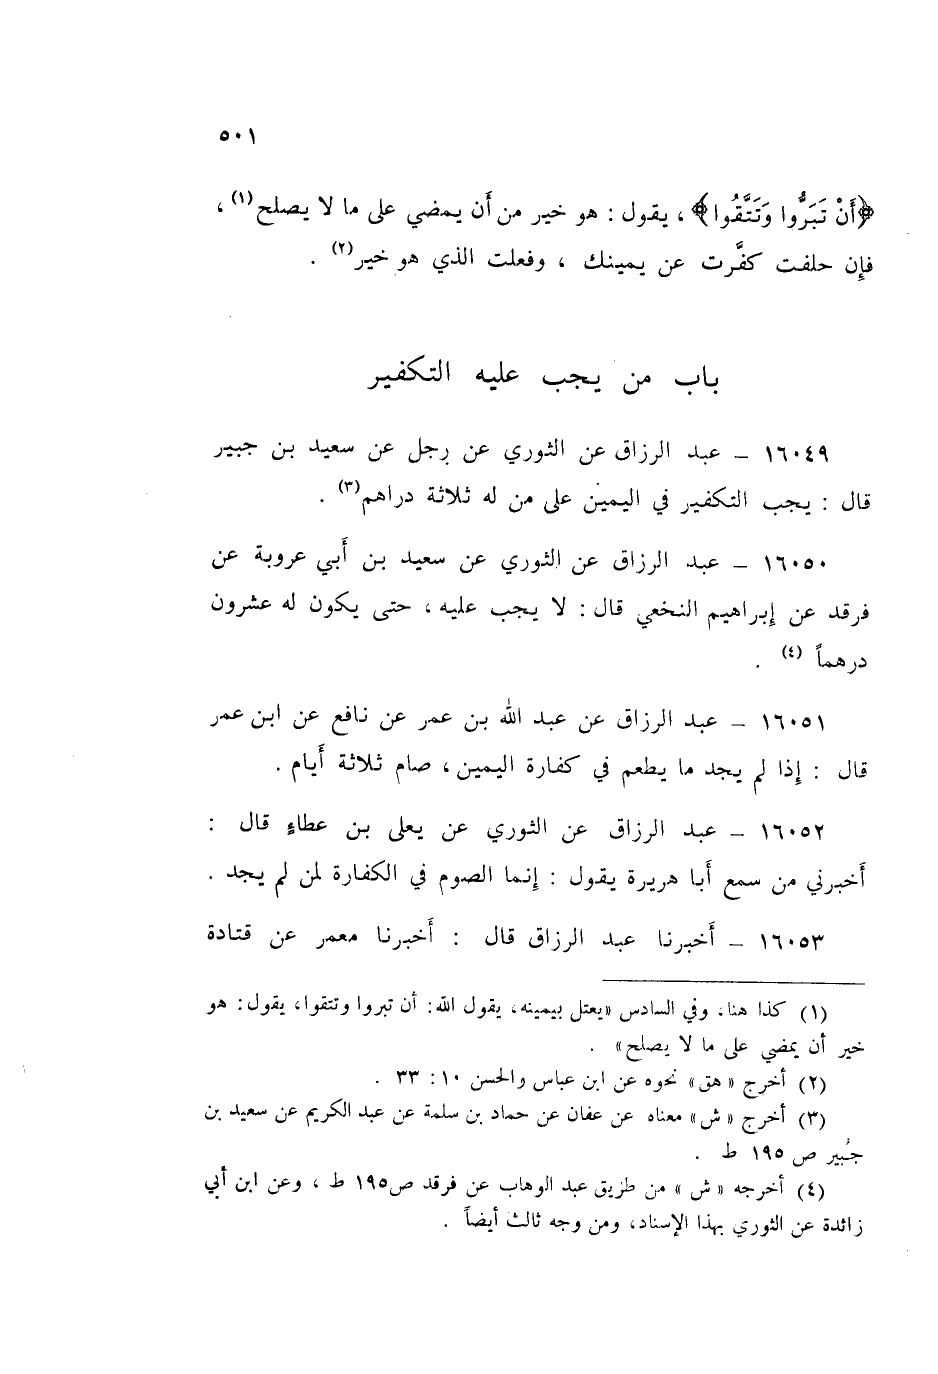 ٥٠١
﴿أَنْ تَبَرُّوا وَتَتَّقُوا﴾ ، يقول : هو خير من أَن يمضي على ما لا يصلح(١) ،
فإِن حلفت كفَّرت عن يمينك ، وفعلت الذي هو خير(٢) .
باب من يجب عليه التكفير
١٦٠٤٩ – عبد الرزاق عن الثوري عن رجل عن سعيد بن جبير
قال : يجب التكفير في اليمين على من له ثلاثة دراهم(٣) .
١٦٠٥٠ – عبد الرزاق عن الثوري عن سعيد بن أَبي عروبة عن
فرقد عن إِبراهيم النخعي قال : لا يجب عليه ، حتى يكون له عشرون
درهماً (٤) .
١٦٠٥١ – عبد الرزاق عن عبد الله بن عمر عن نافع عن ابن عمر
قال : إِذا لم يجد ما يطعم في كفارة اليمين ، صام ثلاثة أَيام .
١٦٠٥٢ – عبد الرزاق عن الثوري عن يعلى بن عطاءٍ قال :
أَخبرني من سمع أَبا هريرة يقول : إِنما الصوم في الكفارة لمن لم يجد .
١٦٠٥٣ – أَخبرنا عبد الرزاق قال : أَخبرنا معمر عن قتادة
(١) كذا هنا، وفي السادس «يعتل بيمينه، يقول الله: أن تبروا وتتقوا، يقول: هو
خير أن يمضي على ما لا يصلح» .
(٢) أخرج «هق» نحوه عن ابن عباس والحسن ١٠: ٣٣ .
(٣) أخرج «ش» معناه عن عفان عن حماد بن سلمة عن عبد الكريم عن سعيد بن
جبُير ص ١٩٥ ط .
(٤) أخرجه «ش» من طريق عبد الوهاب عن فرقد ص١٩٥ ط ، وعن ابن أبي
زائدة عن الثوري بهذا الإسناد، ومن وجه ثالث أيضاً .